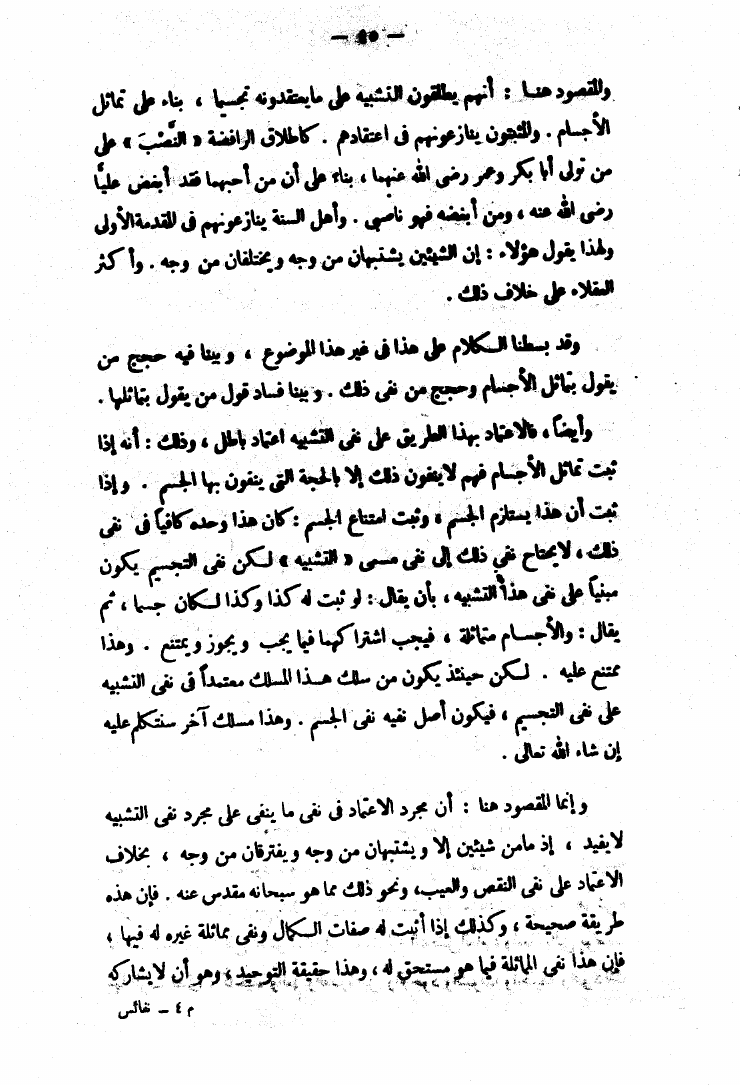 والمقصود هنا : أنهم يطلقون التشبيه على مايعتقدونه تجسيما ، بناء على تماثل
الأجسام . والمثبتون ينازعونهم فى اعتقادهم . كاطلاق الرافضة « النَّصْبَ » على
من تولى أبا بكر وعمر رضى الله عنهما ، بناء على أن من أحبهما فقد أبغض عليًّا
رضى الله عنه ، ومن أبغضه فهو ناصبى . وأهل السنة ينازعونهم فى المقدمة الأولى
ولهذا يقول هؤلاء : إن الشيئين يشتبهان من وجه ويختلفان من وجه . وأكثر
العقلاء على خلاف ذلك .
وقد بسطنا الكلام على هذا فى غير هذا الموضوع ، وبينا فيه حجج من
يقول بتماثل الأجسام وحجج من نفى ذلك . وبينا فساد قول من يقول بتماثلها .
وأيضاً ، فالاعتماد بهذا الطريق على نفى التشبيه اعتماد باطل ، وذلك : أنه إذا
ثبت تماثل الأجسام فهم لاينفون ذلك إلا بالحجة التى ينفون بها الجسم . وإذا
ثبت أن هذا يستلزم الجسم ، وثبت امتناع الجسم : كان هذا وحده كافياً فى نفى
ذلك ، لايحتاح نفي ذلك إلى نفى مسمى « التشبيه » لكن نفى التجسيم يكون
مبنياً على نفى هذا التشبيه ، بأن يقال : لو ثبت له كذا وكذا لكان جسما ، ثم
يقال : والأجسام متماثلة ، فيجب اشتراكهما فيما يجب ويجوز ويمتنع . وهذا
ممتنع عليه . لكن حينئذ يكون من سلك هذا المسلك معتمداً فى نفى التشبيه
على نفى التجسيم ، فيكون أصل نفيه نفى الجسم . وهذا مسلك آخر سنتكلم عليه
إن شاء الله تعالى .
وإنما المقصود هنا : أن مجرد الاعتماد فى نفى ما ينفى على مجرد نفى التشبيه
لايفيد ، إذ مامن شيئين إلا ويشتبهان من وجه ويفترقان من وجه ، بخلاف
الاعتماد على نفى النقص والعيب، ونحو ذلك مما هو سبحانه مقدس عنه . فإن هذه
طريقة صحيحة ، وكذلك إذا أثبت له صفات الكمال ونفى مماثلة غيره له فيها ،
فإن هذا نفى المماثلة فيما هو مستحق له ، وهذا حقيقة التوحيد ، وهو أن لايشاركه
م ٤ ــ نفائس